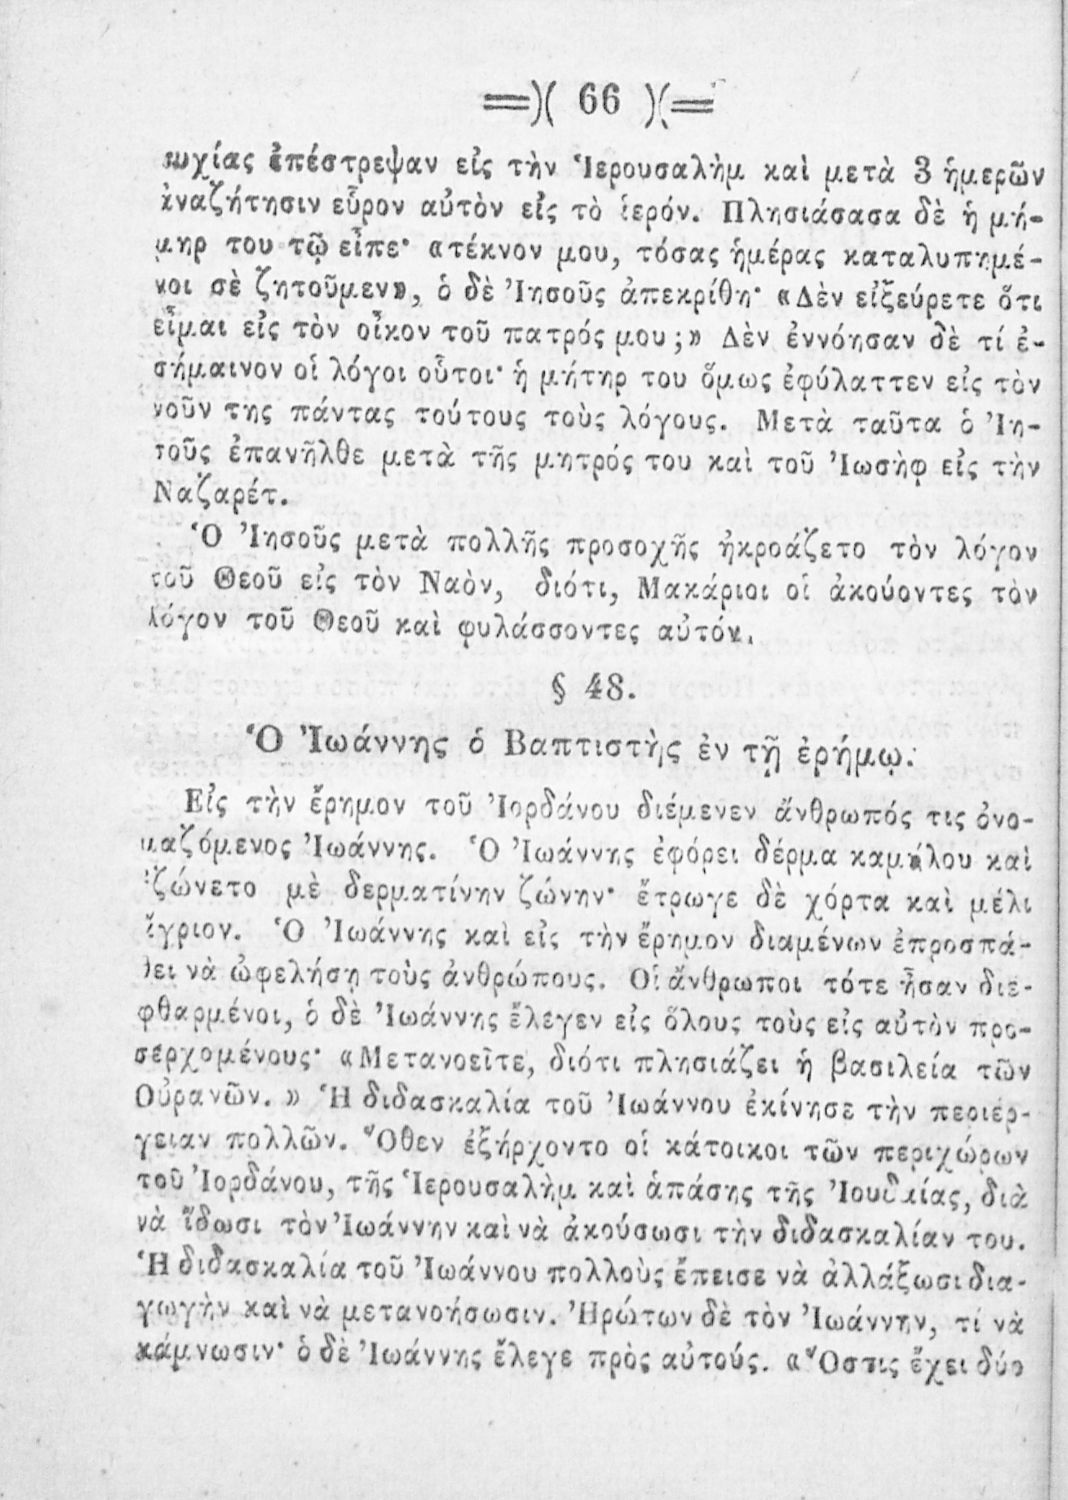 =)( 66 )(=
συχίας ἐπέστρεψαν εἰς τὴν Ἱερουσαλὴμ καὶ μετὰ 3 ἡμερῶν
ἀναζήτησιν εὗρον αὐτὸν εἰς τὸ ἱερόν. Πλησιάσασα δὲ ἡ μή-
τηρ του τῷ εἶπε· «τέκνον μου, τόσας ἡμέρας καταλυπημέ-
νοι σὲ ζητοῦμεν», ὁ δὲ Ἰησοῦς ἀπεκρίθη· «Δὲν εἰξεύρετε ὅτι
εἶμαι εἰς τὸν οἶκον τοῦ πατρός μου;» Δὲν ἐννόησαν δὲ τί ἐ-
σήμαινον οἱ λόγοι οὗτοι· ἡ μήτηρ του ὅμως ἐφύλαττεν εἰς τὸν
νοῦν της πάντας τούτους τοὺς λόγους. Μετὰ ταῦτα ὁ Ἰη-
σοῦς ἐπανῆλθε μετὰ τῆς μητρός του καὶ τοῦ Ἰωσὴφ εἰς τὴν
Ναζαρέτ.
Ὁ Ἰησοῦς μετὰ πολλῆς προσοχῆς ἠκροάζετο τὸν λόγον
τοῦ Θεοῦ εἰς τὸν Ναὸν, διότι, Μακάριοι οἱ ἀκούοντες τὸν
λόγον τοῦ Θεοῦ καὶ φυλάσσοντες αὐτόν.
§ 48.
Ὁ Ἰωάννης ὁ Βαπτιστὴς ἐν τῇ ἐρήμῳ.
Εἰς τὴν ἔρημον τοῦ Ἰορδάνου διέμενεν ἄνθρωπός τις ὀνο-
μαζόμενος Ἰωάννης. Ὁ Ἰωάννης ἐφόρει δέρμα καμήλου καὶ
ἐζώνετο μὲ δερματίνην ζώνην· ἔτρωγε δὲ χόρτα καὶ μέλι
ἄγριον. Ὁ Ἰωάννης καὶ εἰς τὴν ἔρημον διαμένων ἐπροσπά-
θει νὰ ὠφελήσῃ τοὺς ἀνθρώπους. Οἱ ἄνθρωποι τότε ἦσαν διε-
φθαρμένοι, ὁ δὲ Ἰωάννης ἔλεγεν εἰς ὅλους τοὺς εἰς αὐτὸν προ-
σερχομένους· «Μετανοεῖτε, διότι πλησιάζει ἡ βασιλεία τῶν
Οὐρανῶν.» Ἡ διδασκαλία τοῦ Ἰωάννου ἐκίνησε τὴν περιέρ-
γειαν πολλῶν. Ὅθεν ἐξήρχοντο οἱ κάτοικοι τῶν περιχώρων
τοῦ Ἰορδάνου, τῆς Ἱερουσαλὴμ καὶ ἁπάσης τῆς Ἰουδαίας, διὰ
νὰ ἴδωσι τὸν Ἰωάννην καὶ νὰ ἀκούσωσι τὴν διδασκαλίαν του.
Ἡ διδασκαλία τοῦ Ἰωάννου πολλοὺς ἔπεισε νὰ ἀλλάξωσι δια-
γωγὴν καὶ νὰ μετανοήσωσιν. Ἠρώτων δὲ τὸν Ἰωάννην, τί νὰ
κάμνωσιν· ὁ δὲ Ἰωάννης ἔλεγε πρὸς αὐτούς. «Ὅστις ἔχει δύο